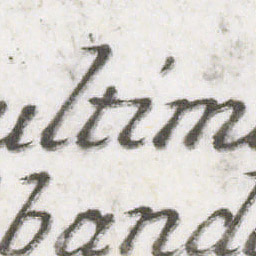 ultim
band